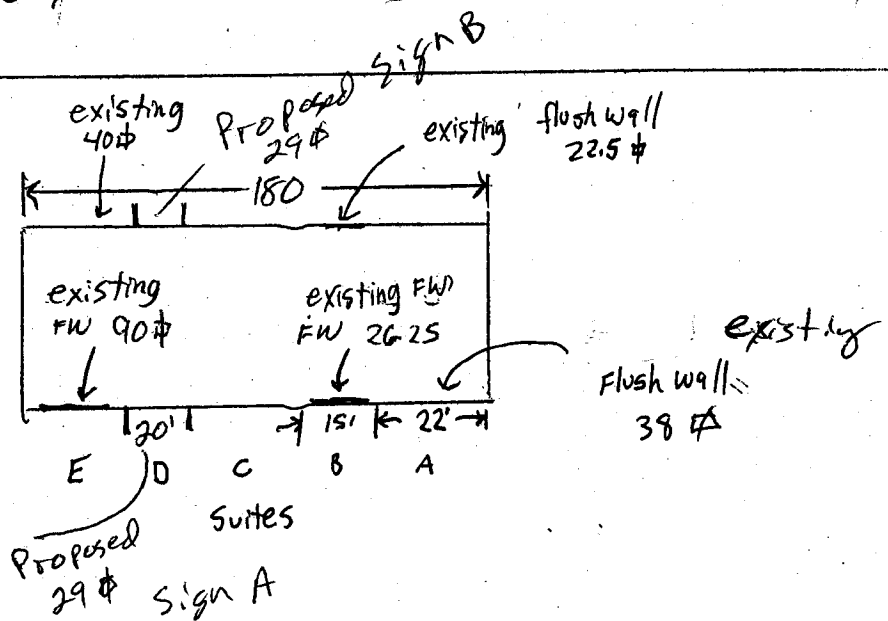 Sign B
existing
40⌷
Proposed
29⌷
existing flush wall
22.5⌷
180
existing
FW 90⌷
existing FW
FW 26.25
existing
Flush wall
38⌷
20' 15' 22'
E D C B A
Suites
Proposed
29⌷ Sign A